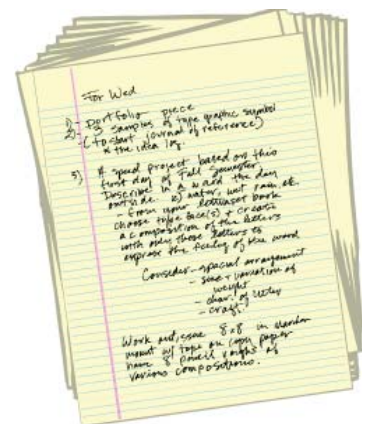 For Wed
1)- Portfolio piece
2)- 3 samples of type graphic symbol
(to start journal of reference)
* the idea log.
3) A speed project based on this
first day of Fall Semester.
Describe in a word the day
outside. ex) water, wet, rain, etc.
- from your letraset book
choose type face(s) + create
a composition of the letters
with only those letters to
express the feeling of the word
Consider - spacial arrangement
- size + variation of
weight
- char. of letter
- craft.
Work out, size 8x8 in
mount w/ tape on copy paper
have 8 pencil roughs of
various compositions.